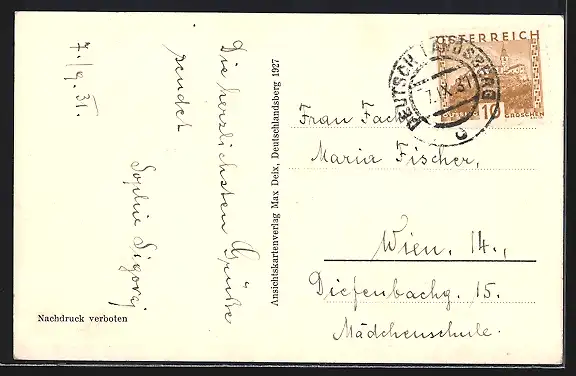 7./9. 31.
Die herzlichsten Grüße
sendet
Sophie
Nachdruck verboten
Ansichtskartenverlag Max Deix, Deutschlandsberg 1927
ÖSTERREICH
10
GROSCHEN
DEUTSCH LANDSBERG
7. IX. 31
Frau
Maria Fischer,
Wien. 14.,
Diefenbachg. 15.
Mädchenschule.